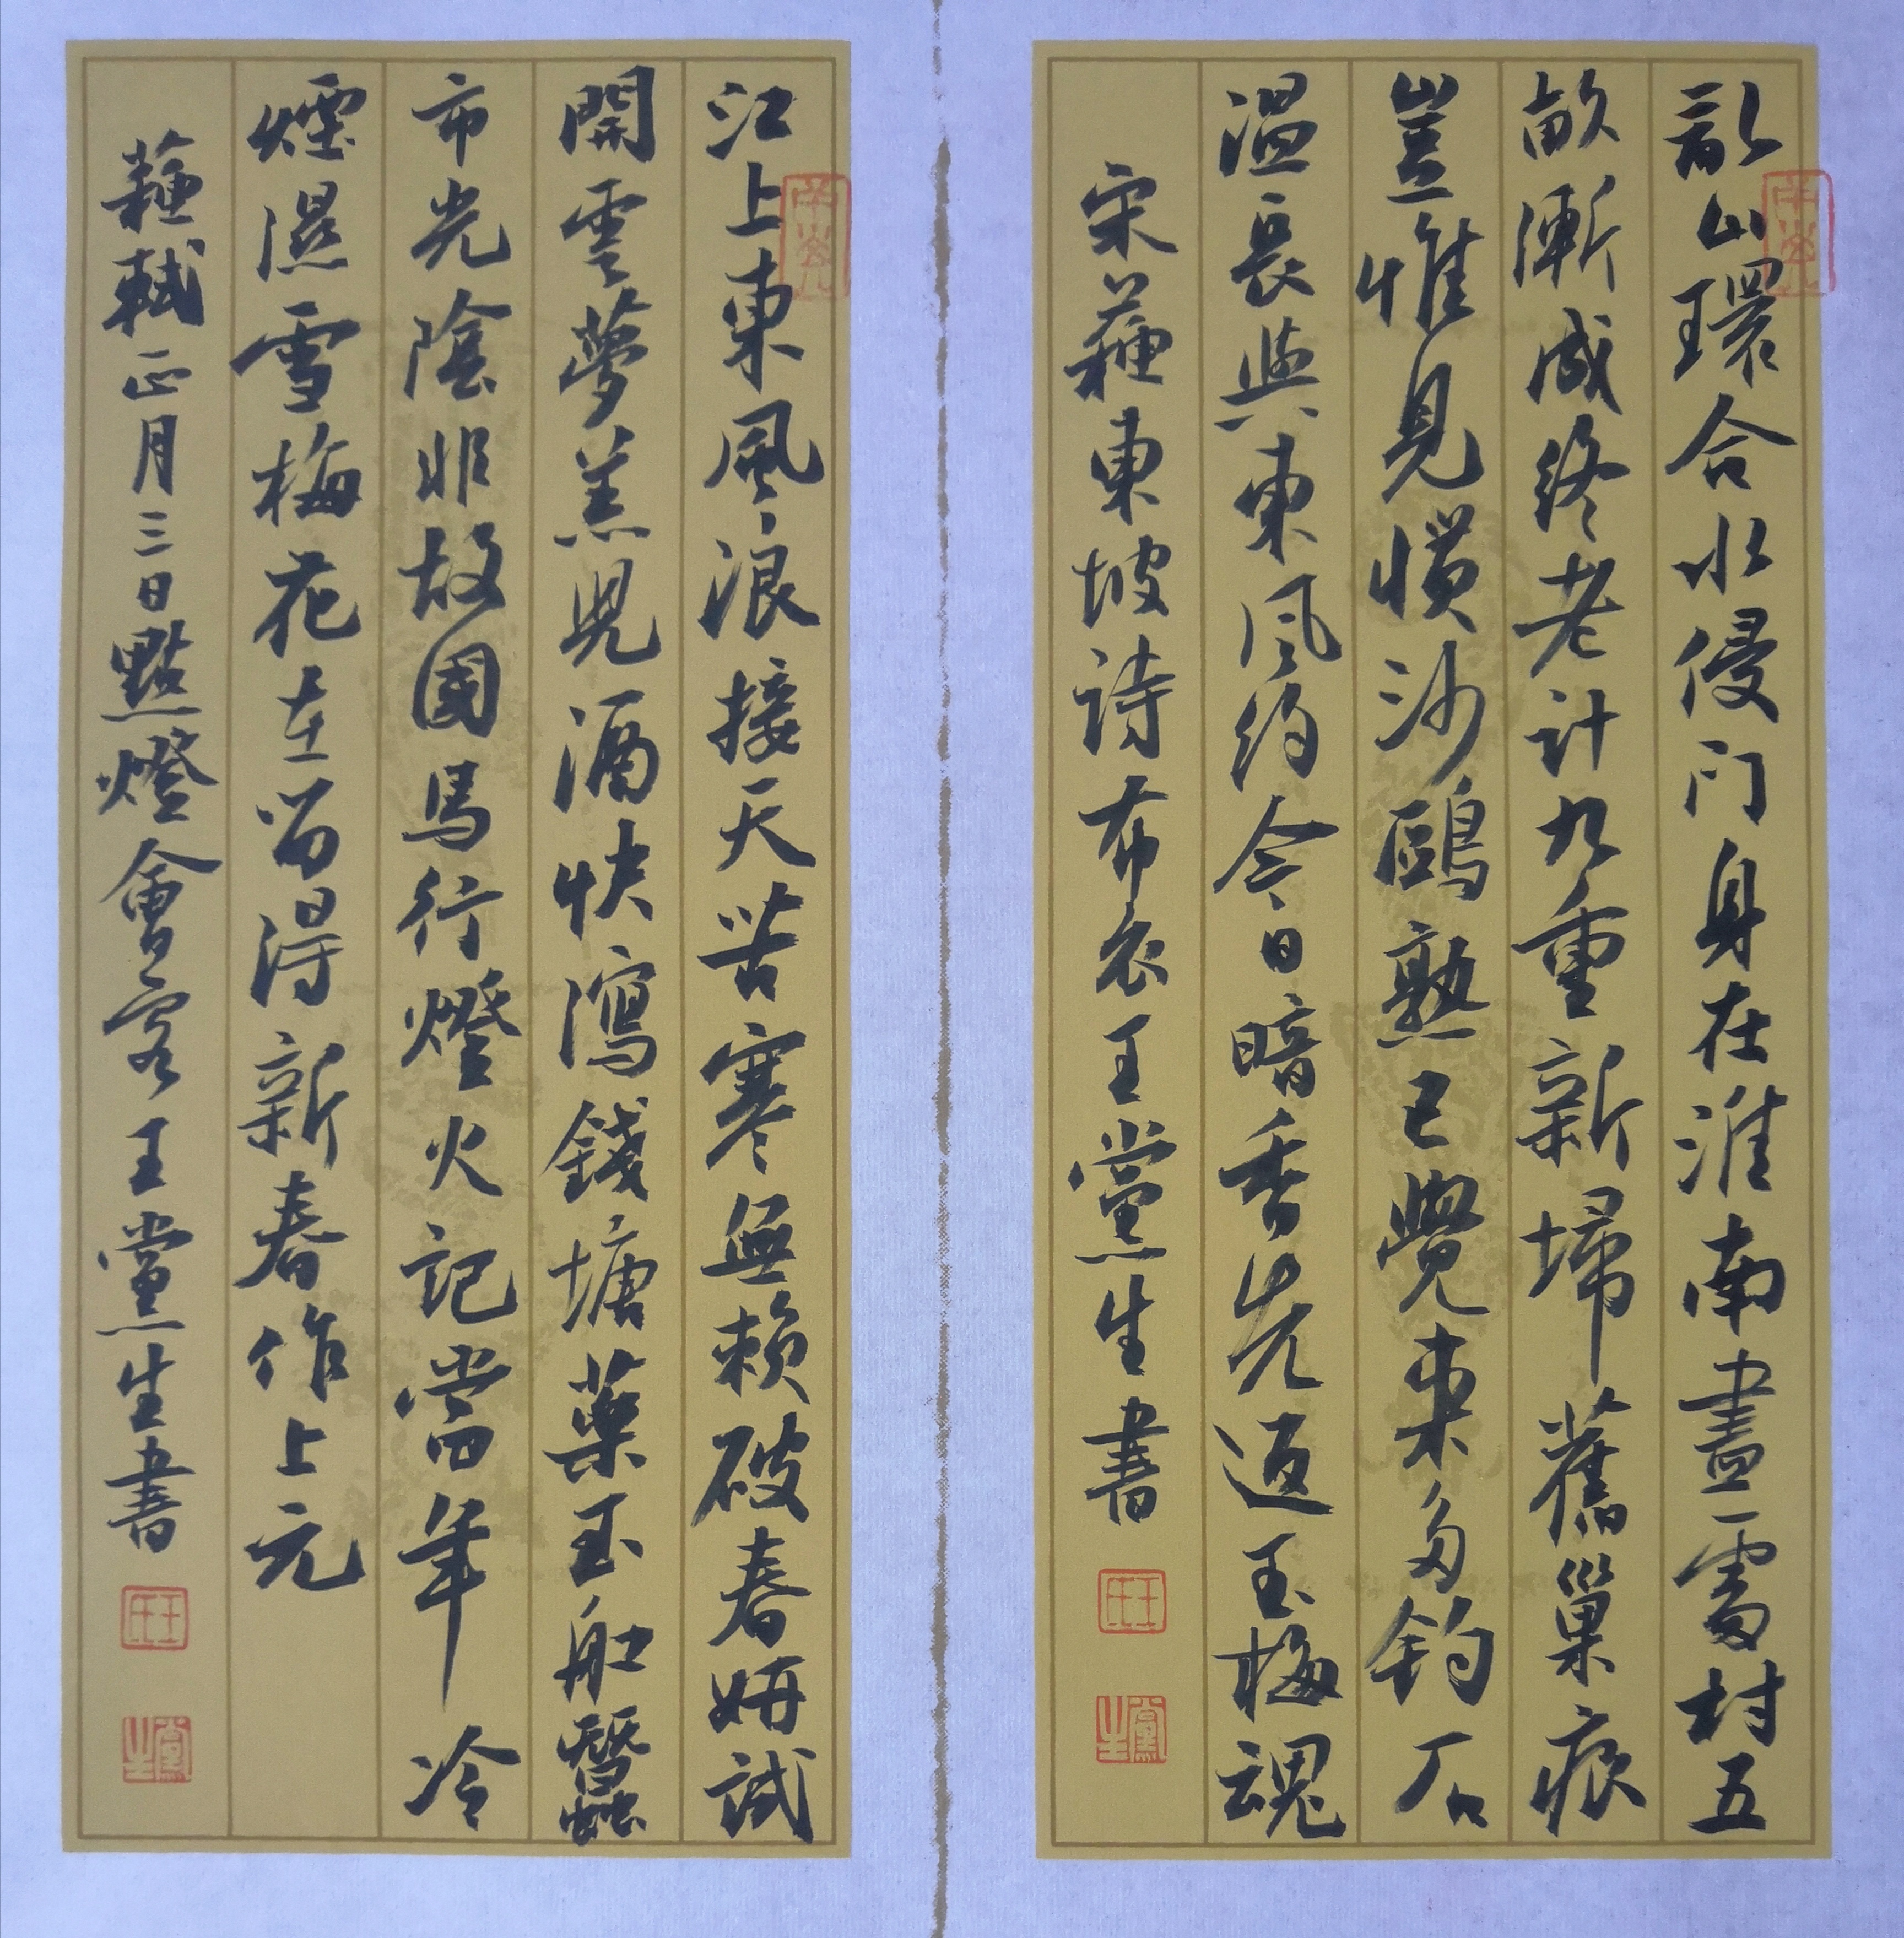 亂山環合水侵门身在淮南盡處村五
畝漸成終老計九重新埽舊巢痕
豈惟見慣沙鷗熟已覺來多釣石
温長與東風約今日暗香先返玉梅魂
宋蘇東坡詩布衣王黨生書
王氏
黨生
江上東風浪接天苦寒無賴破春妍試
開雲夢羔兒酒快瀉錢塘藥玉船蠶
市光陰非故國馬行燈火記當年冷
煙濕雪梅花在留得新春作上元
蘇軾正月三日點燈會客王黨生書
王氏
黨生